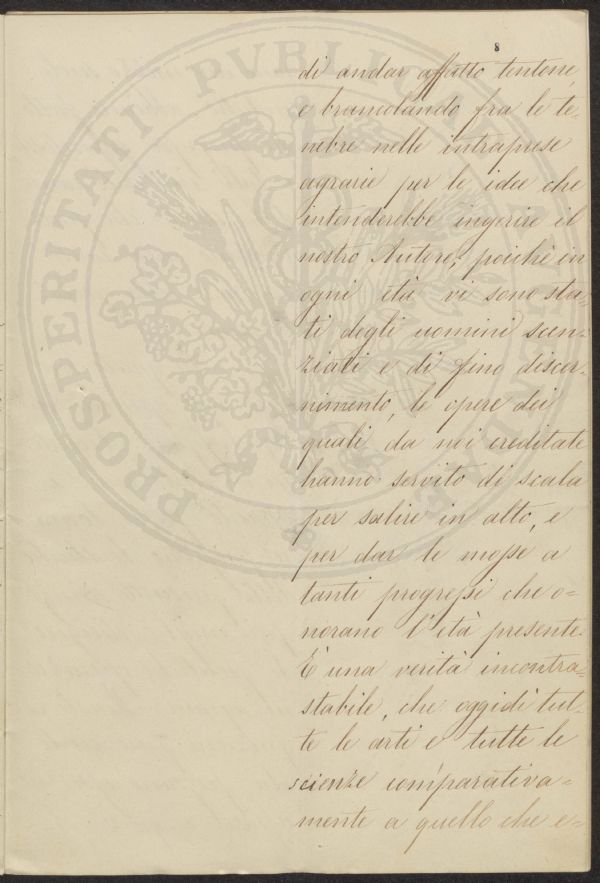 8
di andar affatto tentone,
e brancolando fra le te-
nebre nelle intraprese
agrarie per le idee che
intenderebbe ingerire il
nostro Autore; poichè in
ogni età vi sono sta-
ti degli uomini scen-
ziati e di fino discer-
nimento, le opere dei
quali da noi ereditate
hanno servito di scala
per salire in alto, e
per dar le mosse a
tanti progressi che o-
norano l'età presente.
È una verità incontra-
stabile, che oggidì tut-
te le arti e tutte le
scienze comparativa-
mente a quello che e-
PROSPERITATI PVBLICAE